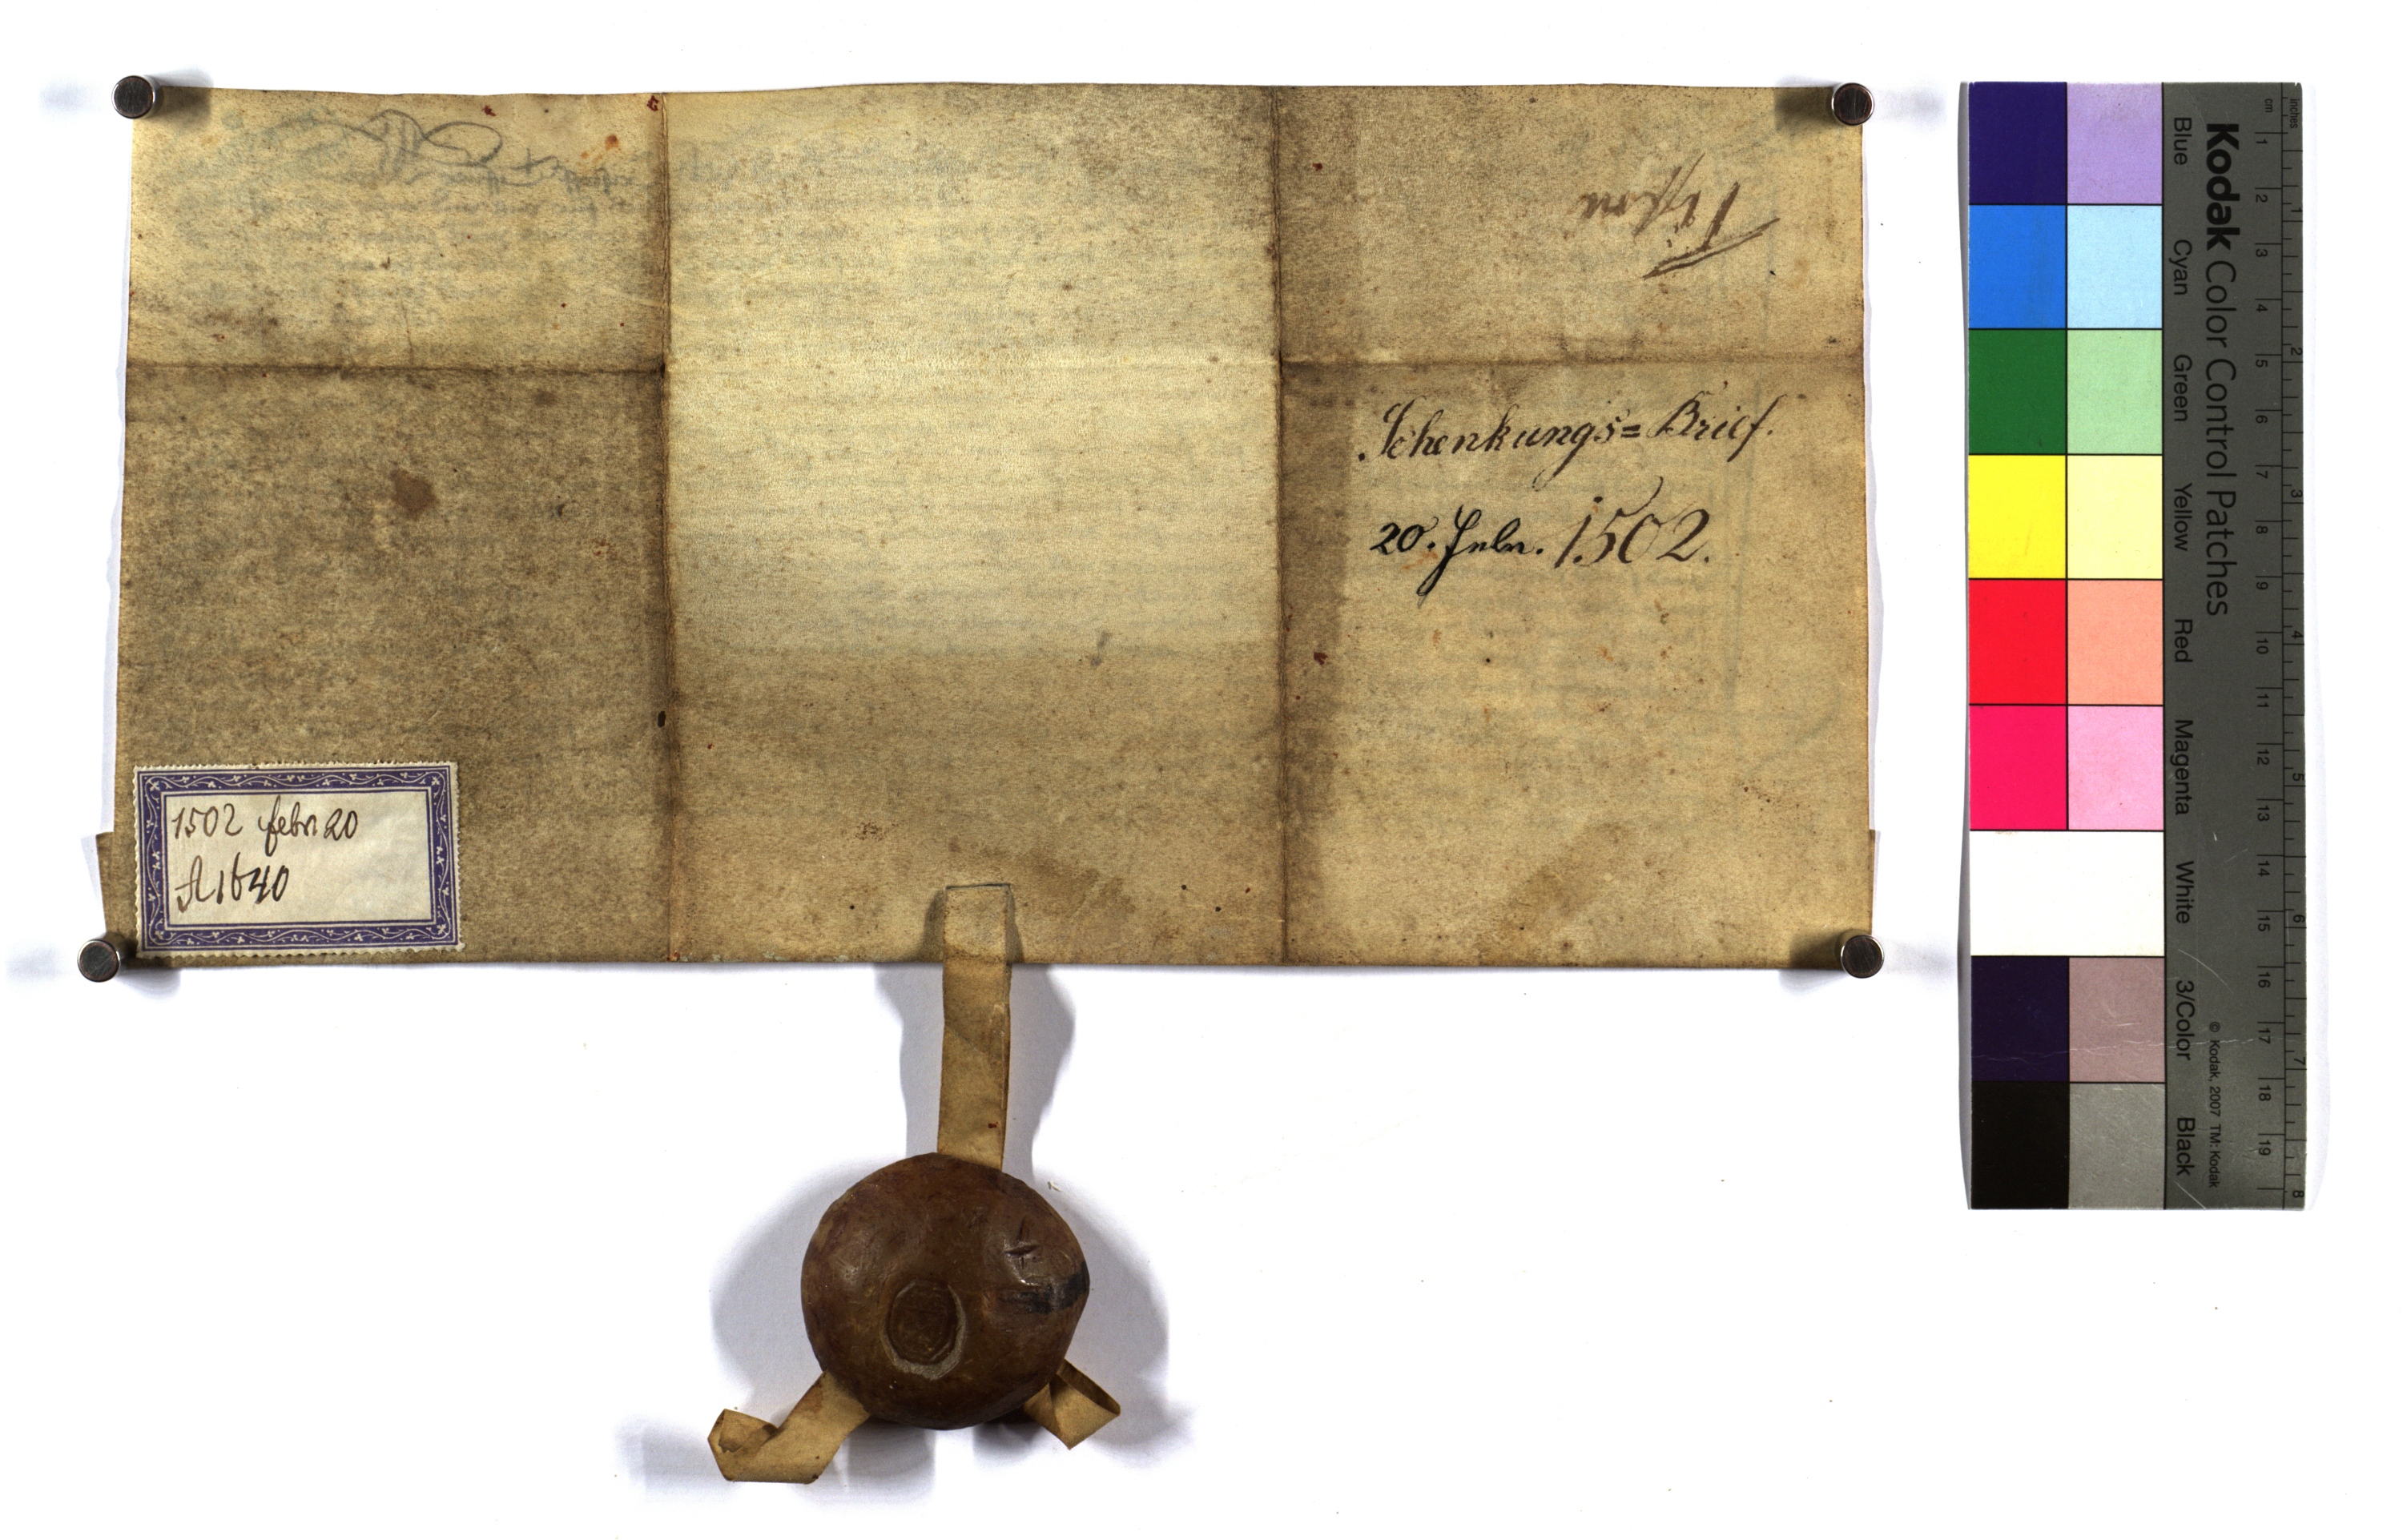 Schenkungs=Brief.
20. Febr. 1502.
1502 febr 20
A 1640
Kodak Color Control Patches
Blue Cyan Green Yellow Red Magenta White 3/Color Black
© Kodak, 2007 TM: Kodak
cm 1 2 3 4 5 6 7 8 9 10 11 12 13 14 15 16 17 18 19
inches 1 2 3 4 5 6 7 8